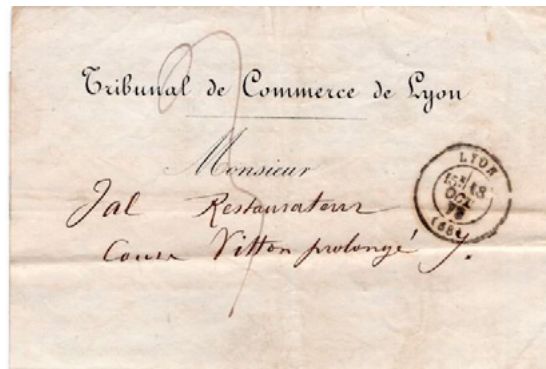 Tribunal de Commerce de Lyon
Monsieur
Jal Restaurateur
Cours Vitton prolongé 7.
3
LYON
18
OCT
78
(68)